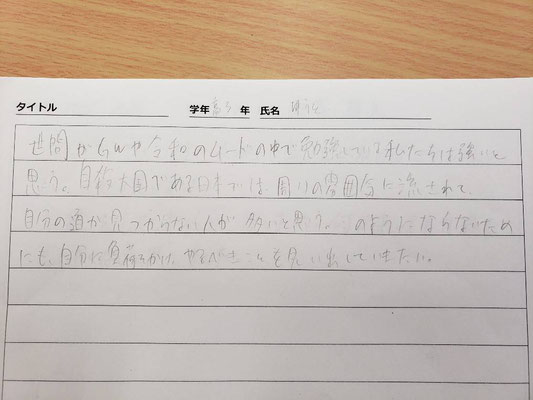 タイトル 学年 高3 年 氏名
世間がGWや令和のムードの中で勉強している私たちは強いと
思う。自殺大国である日本では、周りの雰囲気に流されて、
自分の道が見つからない人が多いと思う。このようにならないため
にも、自分に負荷をかけ、やるべきことを見い出していきたい。